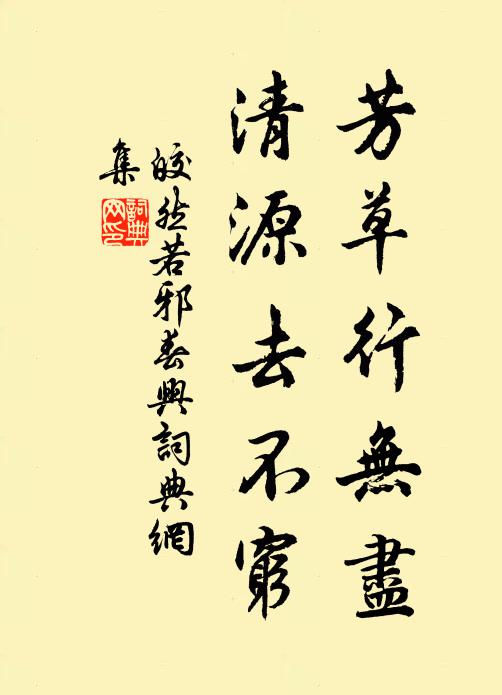 芳草行無盡
清源去不窮
皎然若邪春興詞典網
集
詞典
网印